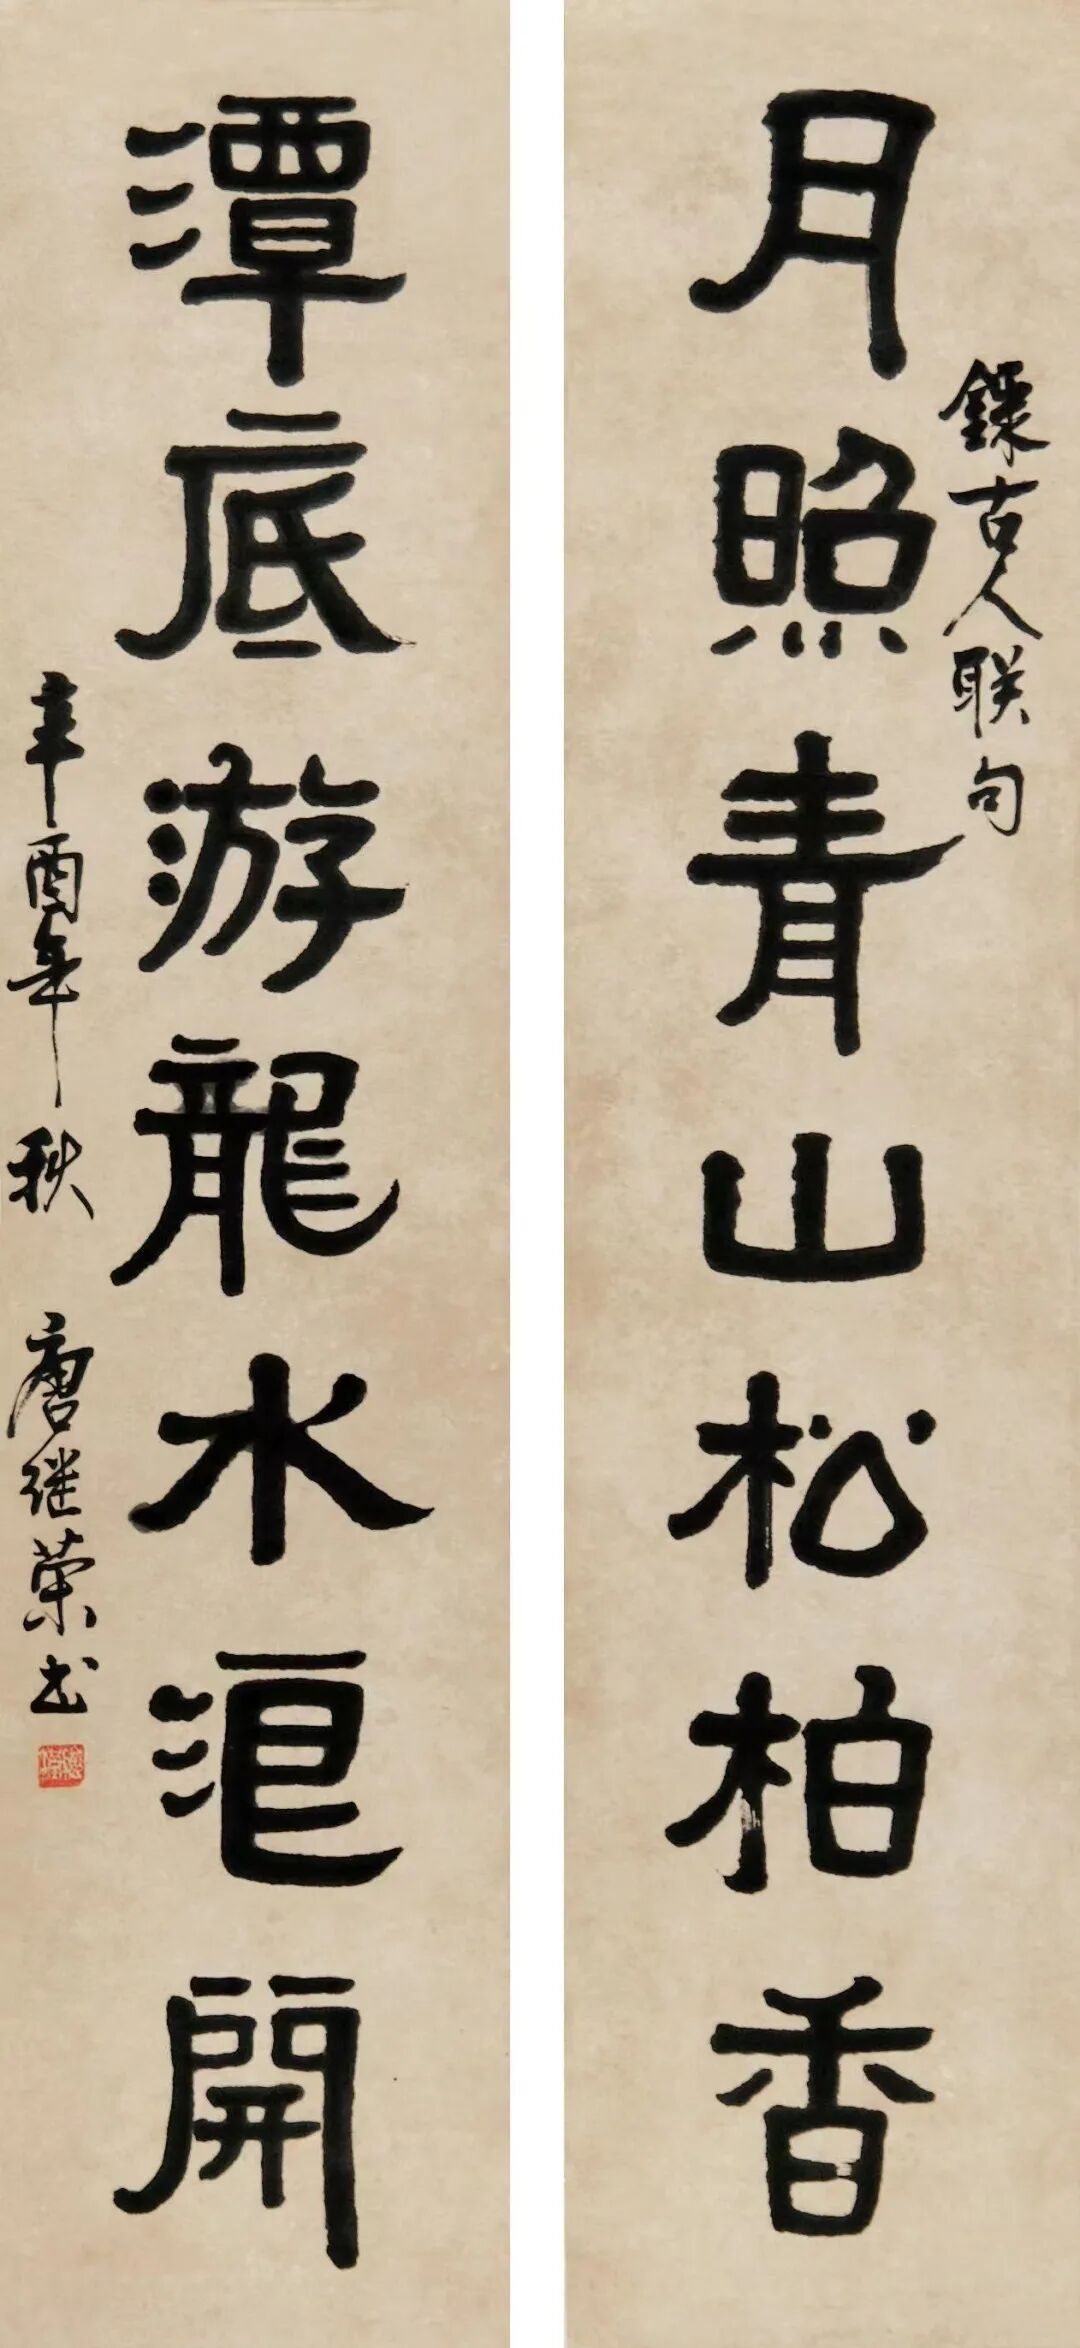 月照青山松柏香
錄古人联句
潭底游龍水浪開
辛酉年秋 唐继荣书